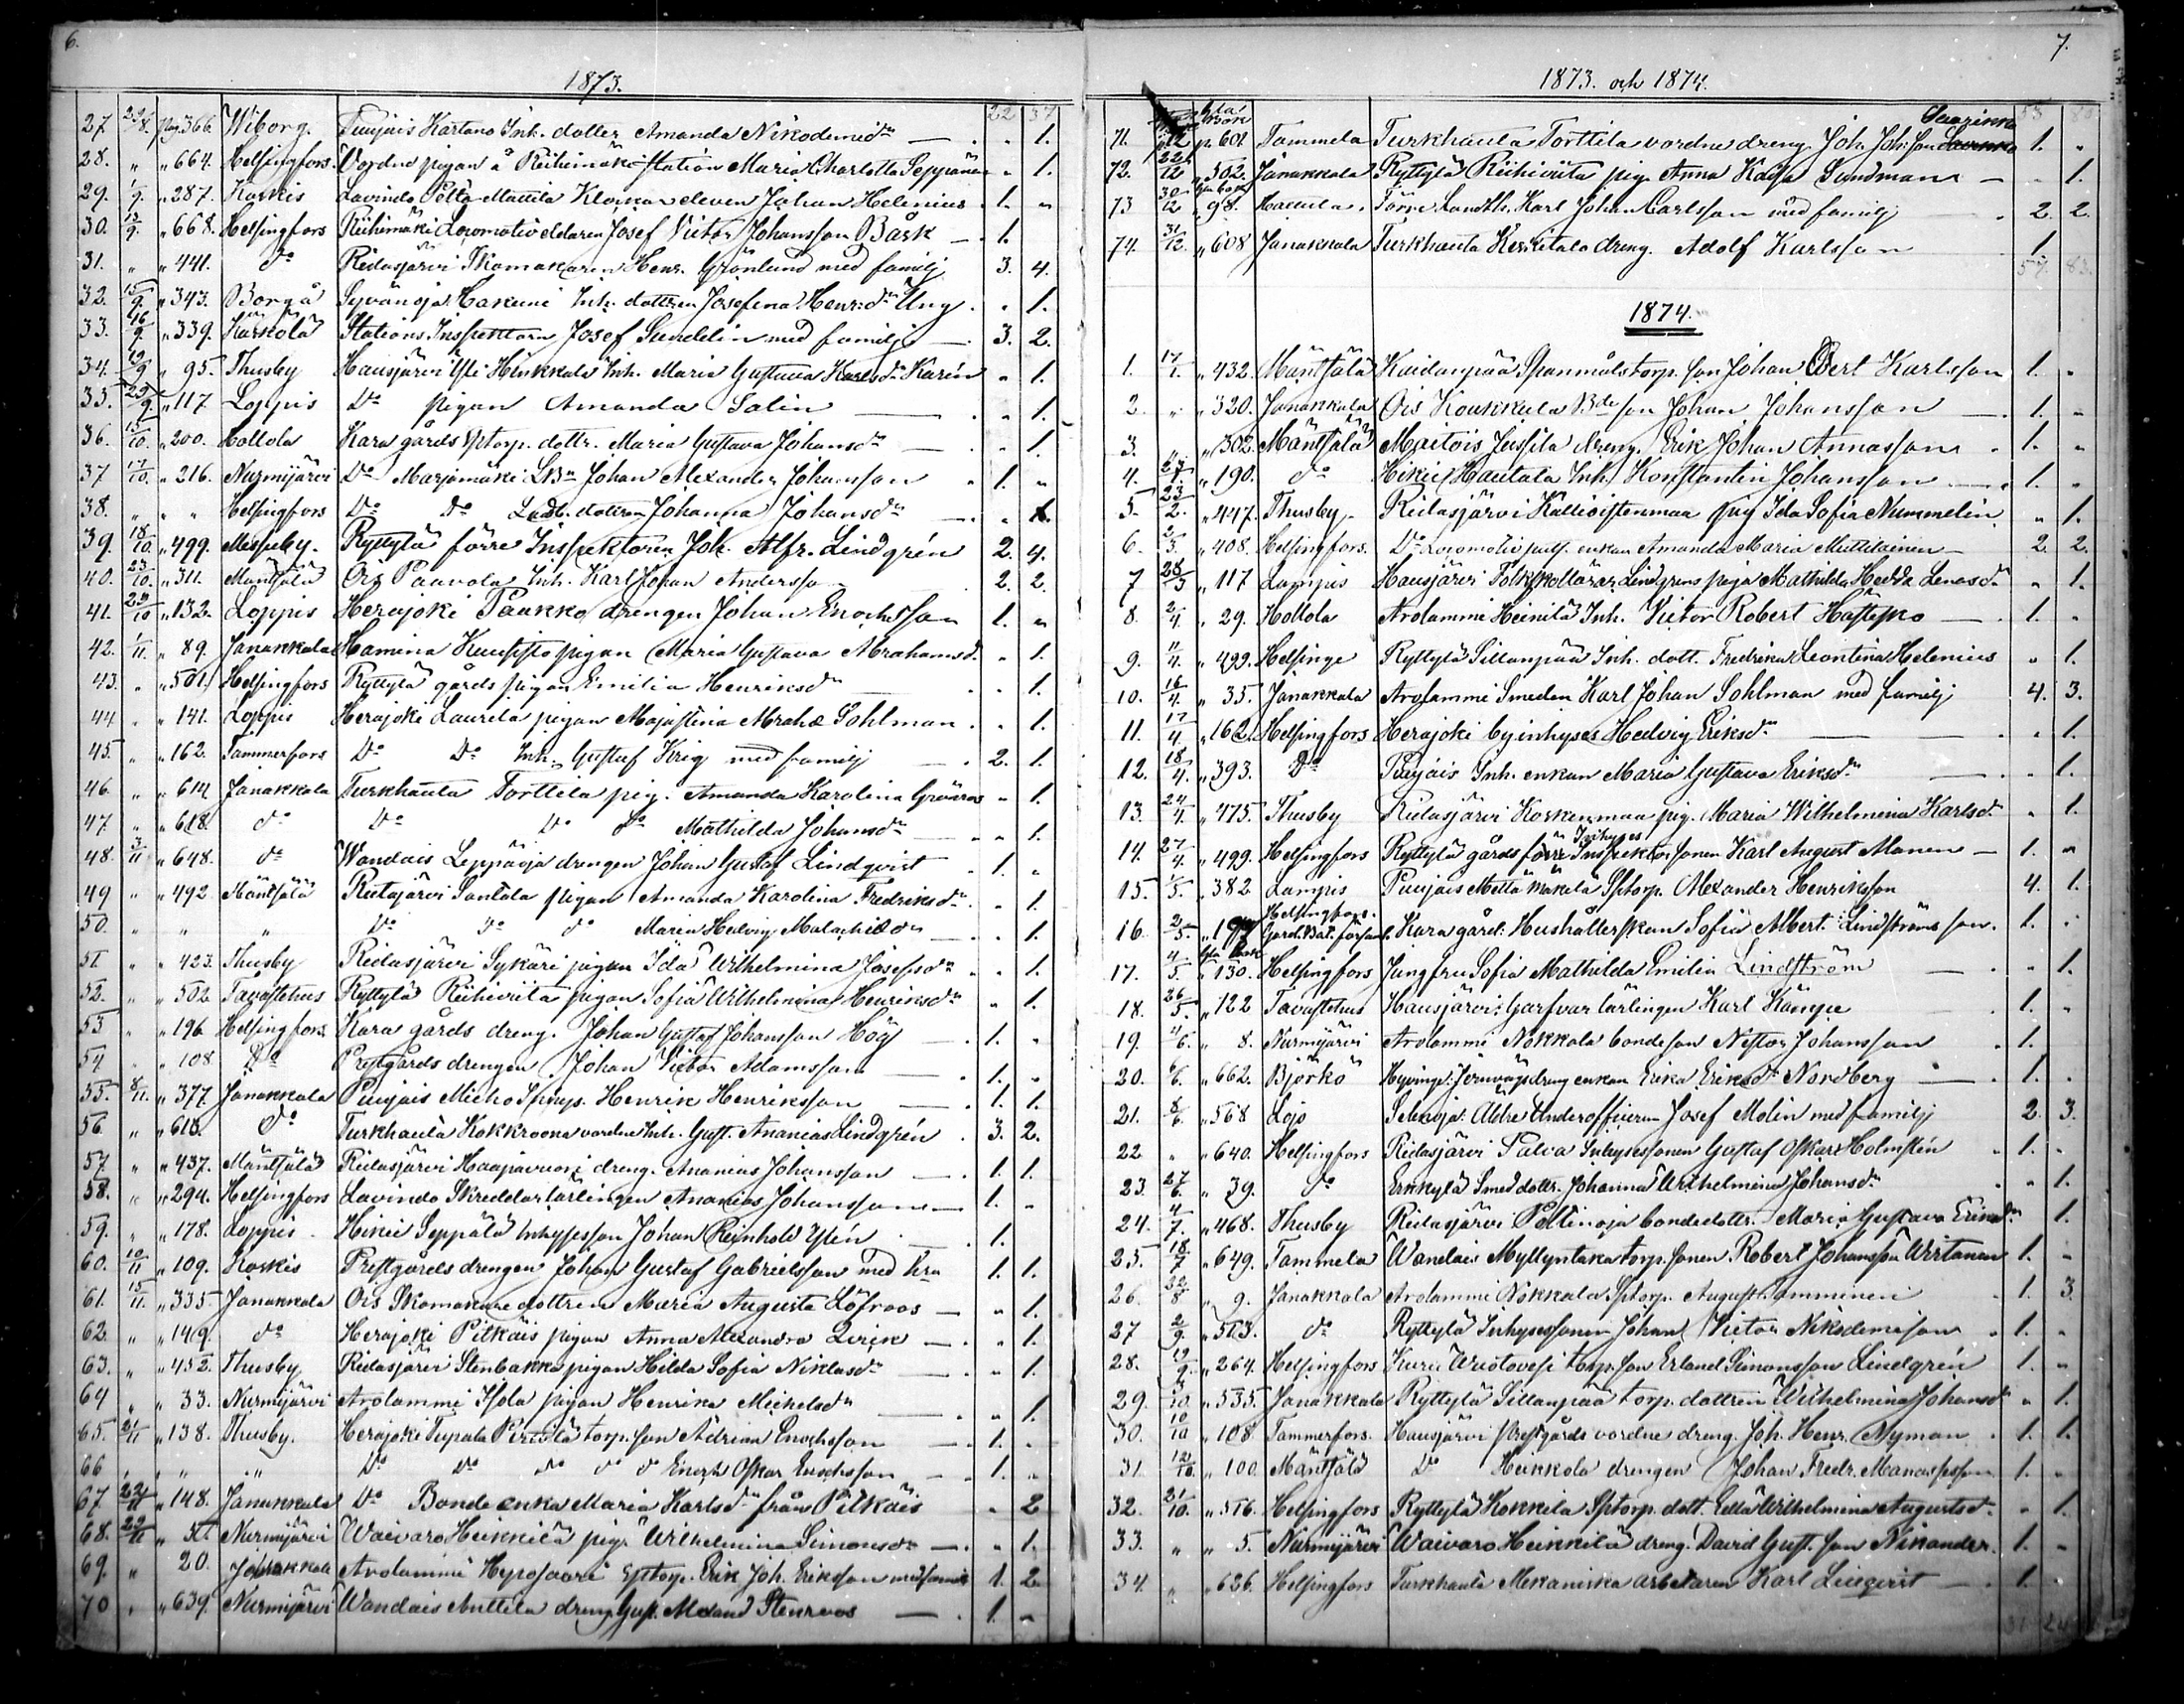 6.
1873.
22 37
27. 29/8. pag. 366. Wiborg. Puujais Kartano Inh. dotter Amanda Nikodemid:r — " 1.
28. " " 664. Helsingfors. Vordne pigan å Riihimäki Station Maria Charlotta Seppänen " 1.
29. 1/9. " 287. Koskis Lavinto Peltо Mattila Klockar eleven Johan Helenius 1. "
30. 13/9. " 668. Helsingfors Riihimäki Lokomotiv eldaren Josef Victor Johansson Bårk — 1.
31. " " 441. d:o Ridasjärvi Skomakaren Henr. Grönlund med familj 3. 4.
32. 15/9. " 343. Borgå Syvänoja Hakuni Inh. dottren Josefina Henr:d:r Ung " 1.
33. 16/9. " 339. Kärkölä Stations Inspektorn Josef Sundelin med familj — 3. 2.
34. 19/9 " 95. Thusby Hausjärvi Yli Hinkkala Inh. Maria Gustava Karlsd:r Karén " 1.
35. 25/9. " 117 Loppis D:o pigan Amanda Salin — " 1.
36. 13/10. " 200. Hollola Kara gårds Sptorp. dottr. Maria Gustava Johansd:r — " 1.
37 17/10. " 216. Nurmijärvi D:o Marjomäki Johan Alexander Johansson 1. "
38. " " " Helsingfors D:o D:o dottren Johanna Johansd:r — " 1.
39. 18/10. " 499. Messuby. Ryttylä förre Inspektoren Joh. Alfr. Lindgrén 2. 4.
40. 23/10. " 311. Mäntsälä Ois Paavola Inh. Karl Johan Andersson 2. 2.
41. 29/10 " 132. Loppis Herajoki Paakko drengen Johan Enochsson 1. "
42. 1/11. " 89. Janakkala Hamina Kuusisto pigan Maria Gustava Abrahamsd. " 1.
43. " " 501. Helsingfors Ryttylä gårds pigan Emilia Henriksd:r — " 1.
44 " " 141. Loppis Herajoki Laurela pigan Majastina Sohlman " 1.
45 " " 162. Tammerfors D:o D:o Inh. Gustaf Krig med familj — 2. 1.
46. " " 614 Janakkala Turkhauta Torttila pig. Amanda Karolina Grönroos " 1.
47. " " 618. d:o D:o D:o d:o Mathilda Johansd:r — " 1.
48. 3/11 " 648. d:o Wandais Leppäoja drengen Johan Gustaf Lindqvist 1. "
49 " " 492. Mäntsälä Ridasjärvi Santala pigan Amanda Karolina Fredriksd:r " 1.
50. " " " D:o d:o d:o Maria Hedvig — " 1.
51. " " 423. Thusby Ridasjärvi Sykäri pigan Ida Wilhelmina Josefsd:r " 1.
52. " " 502 Tavastehus Ryttylä Riihiviita pigan Sofia Wilhelmina Henriksd:r " 1.
53 " " 196 Helsingfors. Kara gårds dreng. Johan Gustaf Johansson Hög — 1. "
54 " " 108. D:o Prestgårds drengen Johan Victor Adamsson — 1. "
55. 8/11. " 377. Janakkala Puujais Micho Sptorp. Henrik Henriksson — 1. 1.
56 " " 618. d:o Turkhauta Kokkroona vordne Inh. Gust. Ananias Lindgrén 3. 2.
57. " " 437. Mäntsälä Ridasjärvi Haapavuori dreng. Ananias Johansson — 1. 1.
58. " " 294. Helsingfors Lavinto Skreddar lärlingen Ananias Johansson — 1. "
59. " " 178. Loppis. Hikiä Seppälä Inhysesson Johan Reinhold — 1.
60. 10/11 " 109. Koskis Prestgårds drengen Johan Gustaf Gabrielsson med hu 1. 1.
61. 15/11. " 335. Janakkala Ois Skomakare dottren Maria Augusta Löfroos — " 1.
62. " " 149. d:o Herajoki Pitkäis pigan Anna Alexandra — " 1.
63. " " 452. Thusby Ridasjärvi Stenbacka pigan Hilda Sofia Niklasd:r — " 1.
64 " " 33. Nurmijärvi Arolammi Isola pigan Henrika Michelsd:r — " 1.
65. 21/11 " 138. Thusby. Herajoki Perttilä torp. son Adrian Enochsson — 1. "
66 " " " D:o d:o d:o d:o d:o Enoch Oskar Enochsson — 1. "
67. 22/11 " 148. Janakkala D:o Bonde enka Maria Karlsd:r från Pitkäis " 2
68. 29/11 " Nurmijärvi Waivaro Heikkilä pig. Wilhelmina Simonsd:r — " 1.
69. " " 20. Janakkala Arolammi Hyposaari Sptorp. Erik Joh. Eriksson med familj 1. 2
70 " " 639. Nurmijärvi Wandais Anttila dreng Gust. Stenroos — 1. "
7.
1873. och 1874.
53 80
71. p. 601. Tammela Turkhauta Torttila vordne dreng Joh. Joh:son Saarikko 1. "
72. 22/12 " 502. Janakkala Ryttylä Riihiviita pig. Anna Kaisa Sundman — " 1.
73 30/12 " 98. Hattula. Förre Landth. Karl Johan Carlsson med familj 2. 2.
74. 31/12. " 608 Janakkala Turkhauta Keskitalo dreng. Adolf Karlsson 1.
57. 83.
1874.
1. 17/1. " 432. Mäntsälä Kaidanpää Spanmåls torp. son Johan Karlsson 1. "
2. " " 320. Janakkala Ois Koukkula B:de son Johan Johansson — 1. "
3. " " 302. Mäntsälä Maitois Jussila dreng. Erik Johan Annasson 1. "
4. 27/1. " 190. d:o Hikiä Hautala Inh. Konstantin Johansson — 1. "
5. 23/2. " 447. Thusby Ridasjärvi Kallioistenmaa pig Ida Sofia Nummelin " 1.
6. 2/3. " 408. Helsingfors. D:o Locomotiv puts. enkan Amanda Maria Mutilainen — 2. 2.
7 28/3 " 117 Lampis Hausjärvi Folkskollärar Lindgrens piga Mathilda Hedda Lenasd:r " 1.
8. 2/4. " 29. Hollola Arolammi Heinilä Inh. Victor Robert — 1. "
9. 11/4. " 499. Helsinge Ryttylä Sillanpää Inh. dott. Fredrika Leontina Helenius " 1.
10. 16/4. " 35. Janakkala Arolammi Smeden Karl Johan Sohlman med familj 4. 3.
11. 17/4. " 162. Helsingfors Herajoki by inhyses Hedvig Eriksd:r — " 1.
12. 18/4. " 393. D:o Puujais Inh. enkan Maria Gustava Eriksd:r — " 1.
13. 24/4. " 475. Thusby Ridasjärvi Koskenmaa pig. Maria Wilhelmina Karlsd:r " 1.
14. 27/4. " 499. Helsingfors Ryttylä gårds förre Inhyses Inspektor sonen Karl August Manen — 1. "
15. 1/5. " 382 Lampis Puujais Mettä Mäkelä Sptorp. Alexander Henriksson 4. 1.
16. 2/5. " Helsingfors. Gard. Bat. församl. Kara gård: Hushållerskan Sofia Albert. Lindströms son. 1. "
17. 4/5. " 130. Helsingfors Jungfru Sofia Mathilda Emilia Lindström — " 1.
18. 26/5. " 122 Tavastehus Hausjärvi: Garfvar lärlingen Karl Kämpe 1. "
19. 4/6. " 8. Nurmijärvi Arolammi Nokkala bonde son Nestor Johansson 1. "
20. 6/6. " 662. Björkö Hyvinge Jernvägs dreng enkan Erika Eriksd:r Nordberg — 1. "
21. 8/6. " 568 Lojo Selänoja: Äldre Underofficieren Josef Molin med familj 2. 3.
22 " " 640. Helsingfors Ridasjärvi Palva Inhysessonen Gustaf Oskar Holmstén 1. "
23. 27/6. " 39. d:o Erkkylä Smed dottr. Johanna Wilhelmina Johansd:r " 1.
24. 4/7. " 468. Thusby Ridasjärvi Peltinoja bonde dottr. Maria Gustava Eriksd:r 1.
25. 18/7 " 649. Tammela Wandais Myllyntaka torp. sonen Robert Johansson Wirtanen 1. "
26. 22/8 " 9. Janakkala Arolammi Nokkala Sptorp. August 1. 3.
27 2/9. " 513. d:o Ryttylä Inhysessonen Johan Victor Nikodemisson 1. "
28. 19/9. " 264. Helsingfors Kuru torp. son Erland Simonsson Lindgrén 1. "
29. 1/10. " 535. Janakkala Ryttylä Sillanpää torp. dottren Wilhelmina Johansd:r " 1.
30. 10/10 " 108 Tammerfors. Hausjärvi Prestgårds vordne dreng. Joh. Henr. Nyman 1. 1.
31. 12/10. " 100. Mäntsälä D:o Heikkola drengen Johan Fredr. Manassesson 1. "
32. 21/10. " 516. Helsingfors Ryttylä Kokkila Sptorp. dott. Edla Wilhelmina Augustsd:r " 1.
33. " " 5. Nurmijärvi Waivaro Heikkilä dreng. David Gust. son Nikander. 1. "
34. " " 626. Helsingfors Turkhauta Mekaniska arbetaren Karl Linqvist — 1. "
31 24